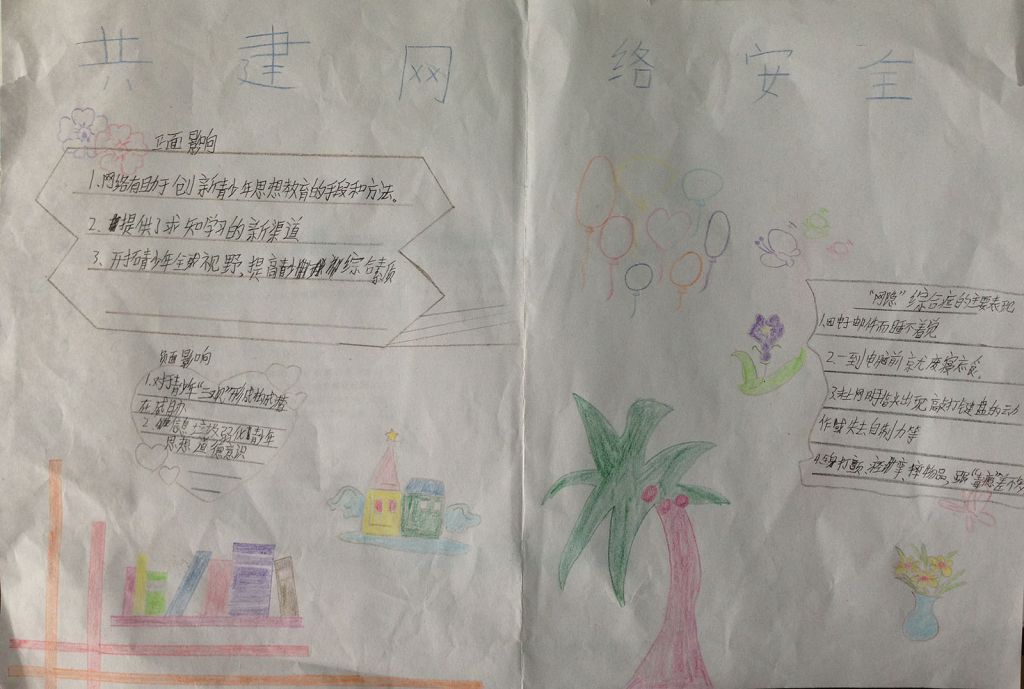 共建网络安全
正面影响
1.网络有助于创新青少年思想教育的手段和方法。
2.提供了求知学习的新渠道
3.开拓青少年全球视野,提高青少年综合素质
负面影响
1.对于青少年“三观”形成构成潜
在威胁
2.信息垃圾弱化青少年
思想道德意识
“网隐”综合症的主要表现
1.因好邮件而睡不着觉
2.一到电脑前就废寝忘食。
3.未上网时指尖出现敲打键盘的动
作或失去自制力等
物品,跟“毒瘾”差不多